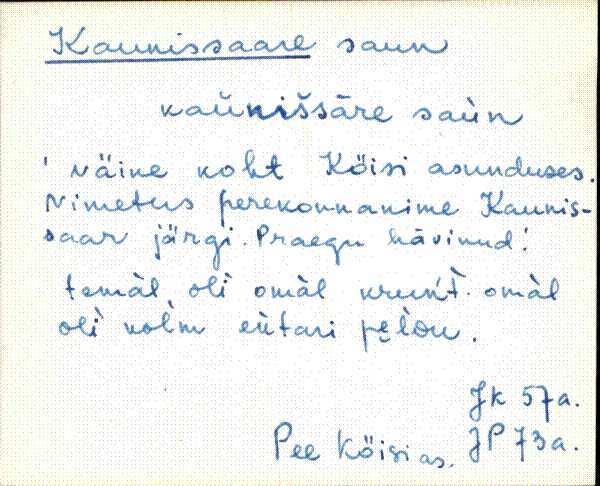 Kaunissaare saun
kaùnišsāre saùn
' Näine koht Köisi asunduses.
Nimetus perekonnanime Kaunis-
saar järgi. Praegu hävinud.'
temàl oli omàl krun't̀. omàl
oli kolm
Jk 57a.
Pee Köisi as. JP 73a.